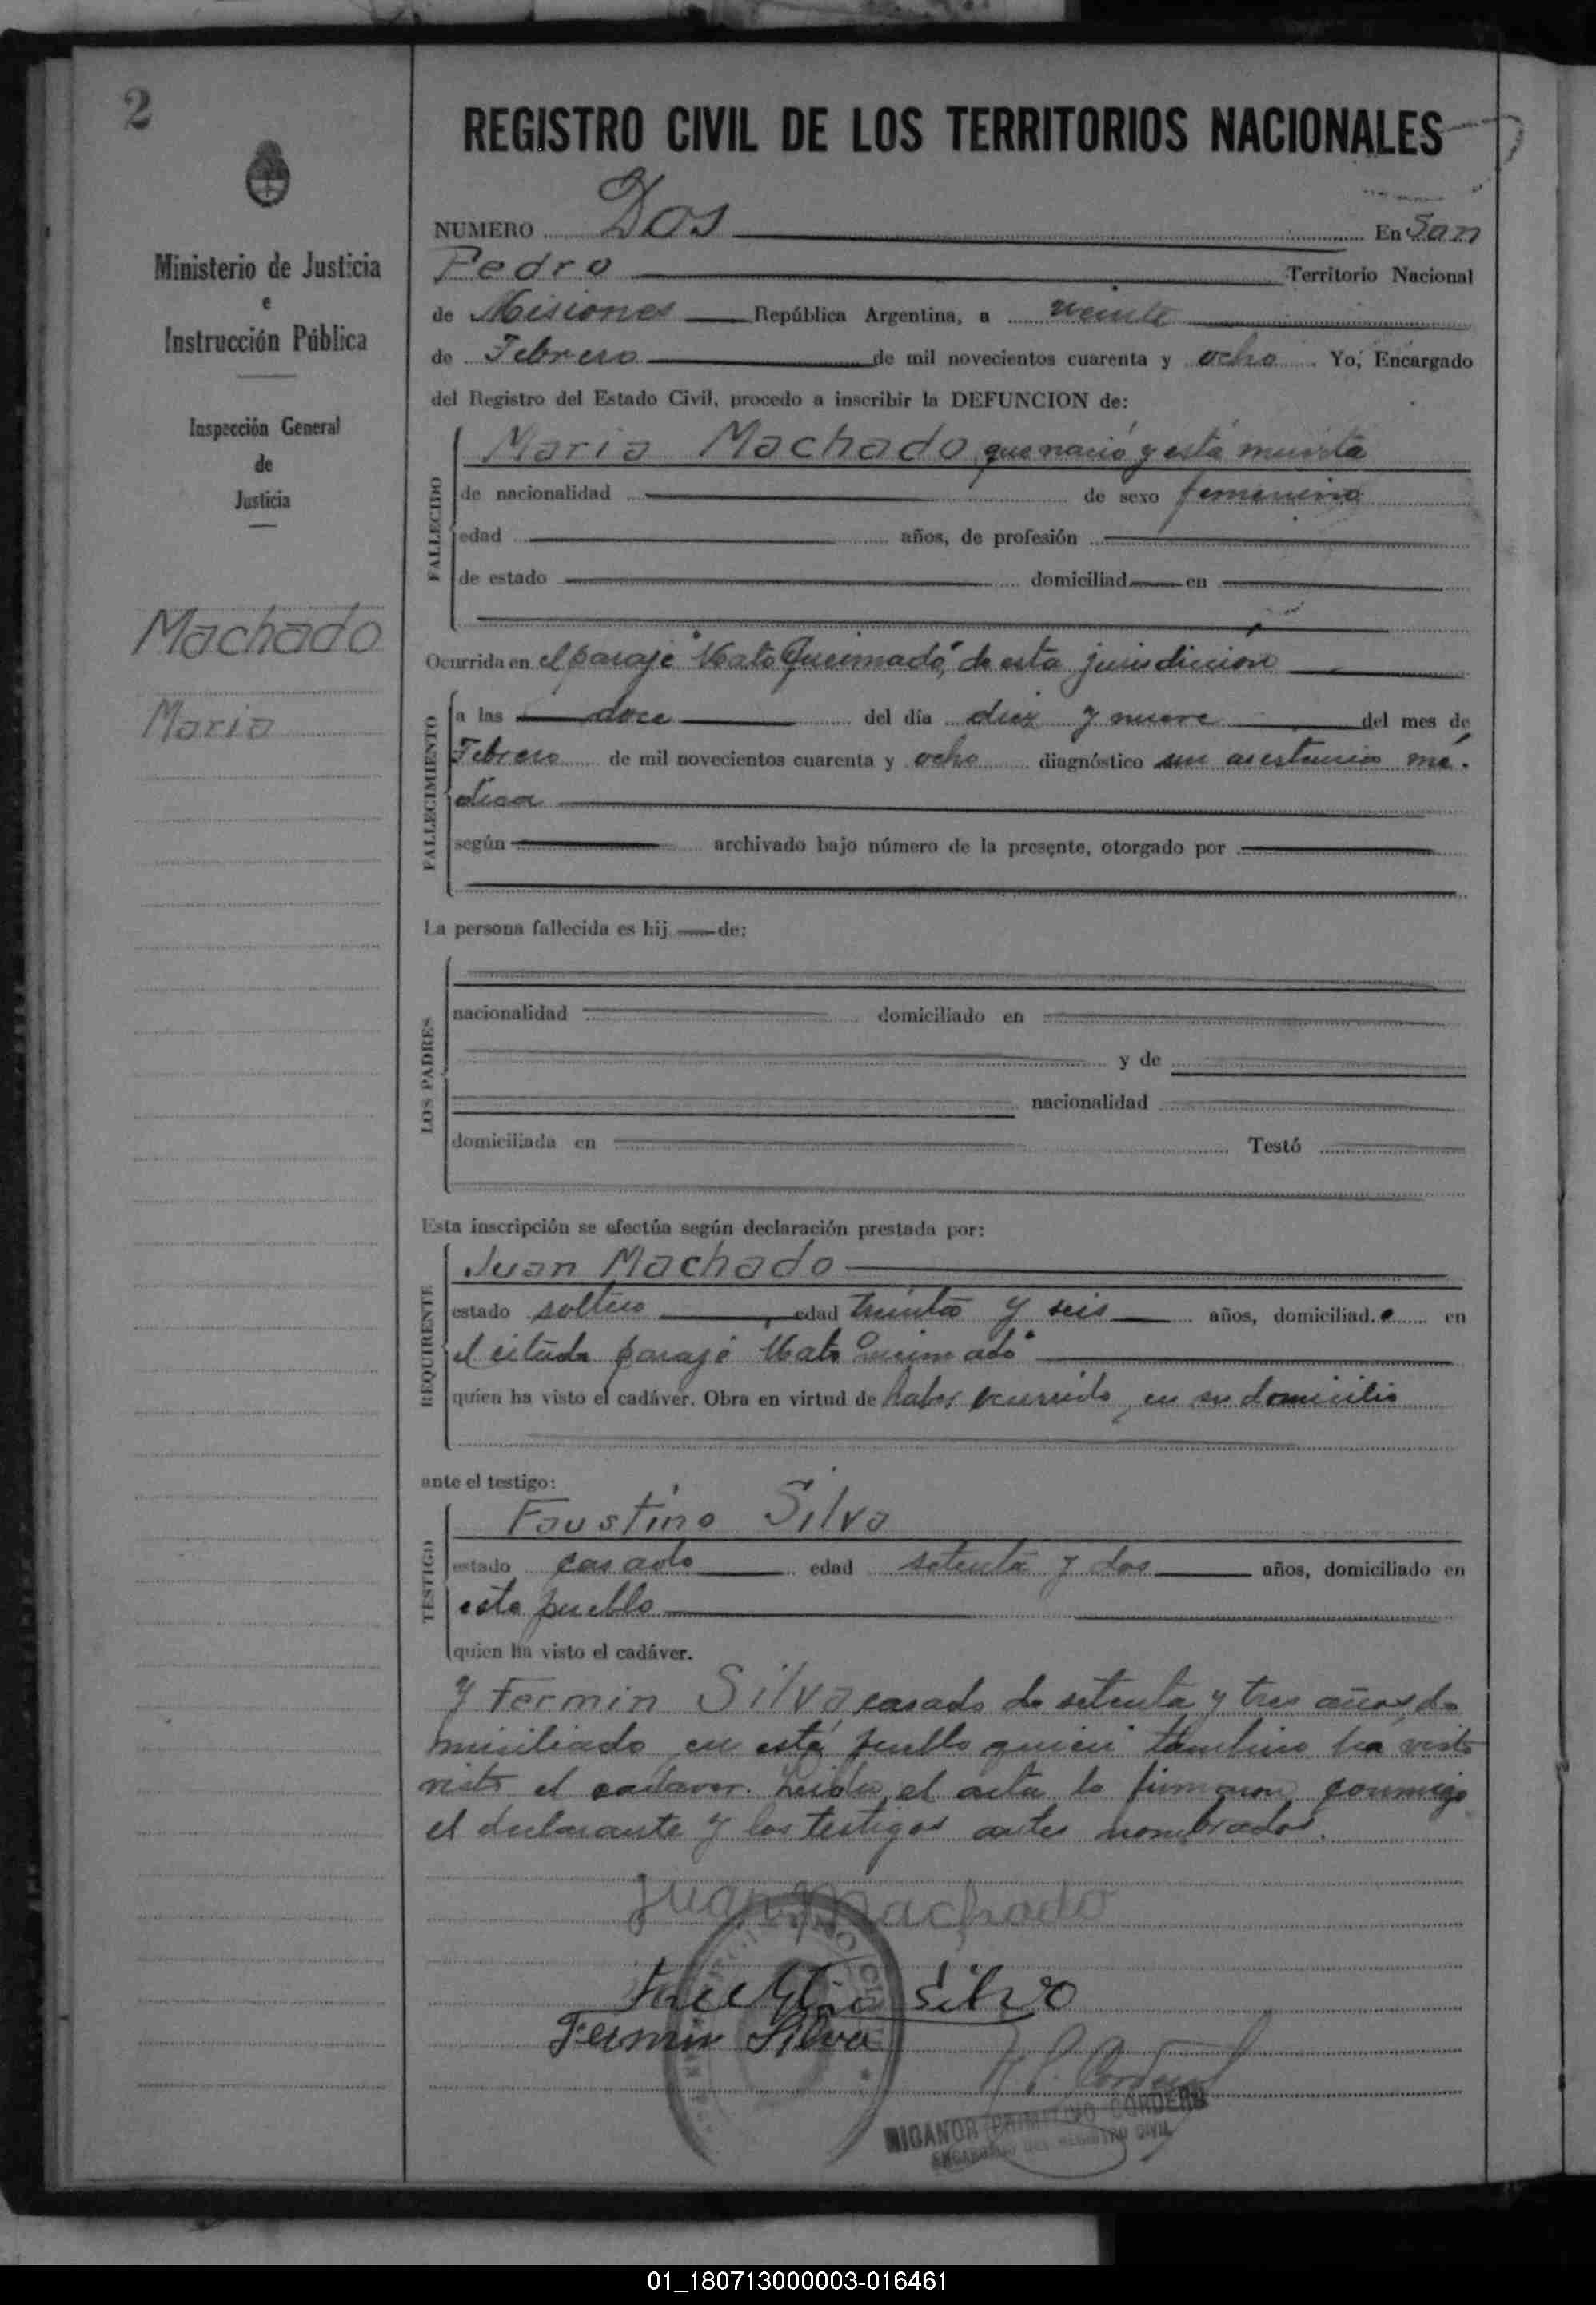 2
REGISTRO CIVIL DE LOS TERRITORIOS NACIONALES
Ministerio de Justicia
e
Instrucción Pública
Inspección General
de
Justicia
Machado
Maria
NUMERO Dos En San
Pedro Territorio Nacional
de Misiones República Argentina, a veinte
de Febrero de mil novecientos cuarenta y ocho Yo, Encargado
del Registro del Estado Civil, procedo a inscribir la DEFUNCION de:
FALLECIDO
Maria Machado que nació y está muerta
de nacionalidad de sexo femenino
edad años, de profesión
de estado domiciliad en
Ocurrida en el paraje "Mato Queimado", de esta jurisdiccion
FALLECIMIENTO
a las doce del día diez y nueve del mes de
Febrero de mil novecientos cuarenta y ocho diagnóstico sin asistencia mé-
dica
según archivado bajo número de la presente, otorgado por
La persona fallecida es hij de:
LOS PADRES
nacionalidad domiciliado en
y de
nacionalidad
domiciliada en Testó
Esta inscripción se efectúa según declaración prestada por:
REQUIRENTE
Juan Machado
estado soltero edad treinta y seis años, domiciliad.o en
el citado paraje "Mato Queimado"
quien ha visto el cadáver. Obra en virtud de haber ocurrido en su domicilio
ante el testigo:
TESTIGO
Faustino Silva
estado casado edad setenta y dos años, domiciliado en
este pueblo
quien ha visto el cadáver.
y Fermin Silva casado de setenta y tres años, do
miciliado en este pueblo quien tambien ha visto
visto el cadaver. Leida el acta la firmaron conmigo
el declarante y los testigos antes nombrados.
Juan Machado
Silva
Fermin Silva
NICANOR PRIMITIVO CORDERO
ENCARGADO DEL REGISTRO CIVIL
01_180713000003-016461